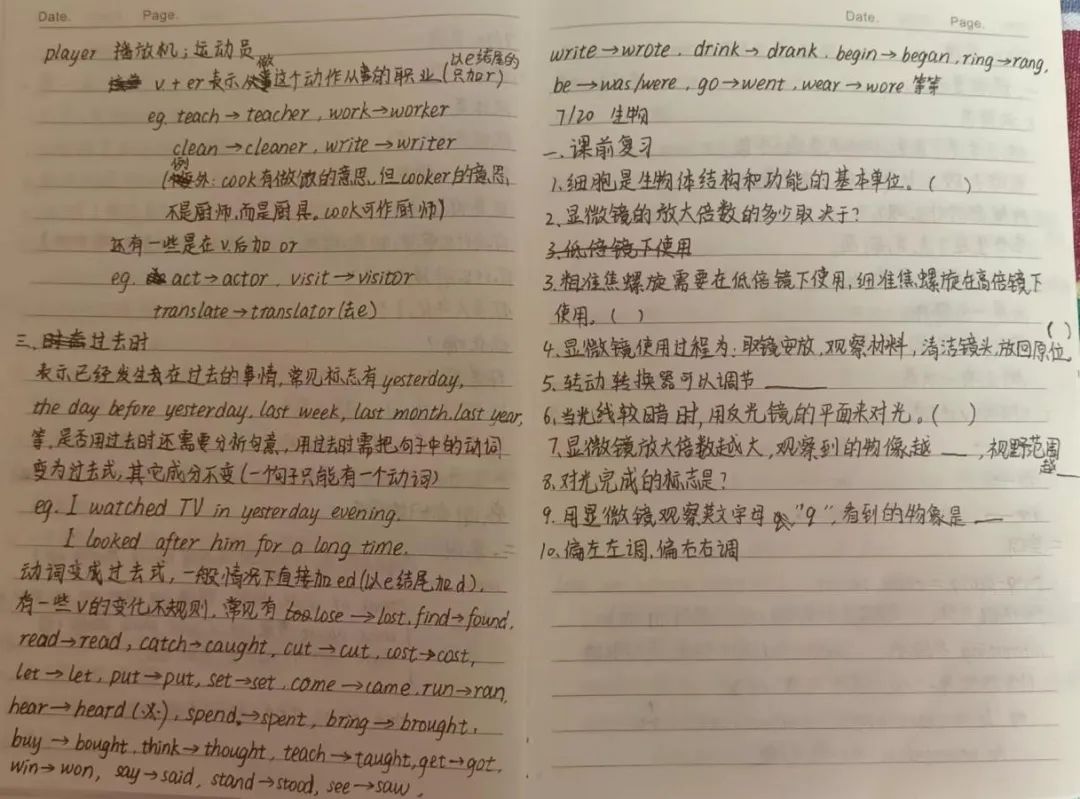 Date. Page.
player 播放机；运动员
v+er表示做这个动作从事的职业(以e结尾的只加r)
eg. teach→teacher, work→worker
clean→cleaner, write→writer
(例外：cook有做饭的意思，但cooker的意思，
不是厨师，而是厨具。cook可作厨师)
还有一些是在v.后加or
eg. act→actor, visit→visitor
translate→translator(去e)
三、过去时
表示已经发生在过去的事情，常见标志有yesterday,
the day before yesterday, last week, last month. last year,
等，是否用过去时还需要分析句意，用过去时需把句子中的动词
变为过去式，其它成分不变(一个句子只能有一个动词)
eg. I watched TV in yesterday evening.
I looked after him for a long time.
动词变成过去式，一般情况下直接加ed(以e结尾加d)，
有一些v的变化不规则，常见有lose→lost, find→found,
read→read, catch→caught, cut→cut, cost→cost,
let→let, put→put, set→set, come→came, run→ran,
hear→heard(※), spend→spent, bring→brought,
buy→bought, think→thought, teach→taught, get→got,
win→won, say→said, stand→stood, see→saw,
Date. Page.
write→wrote, drink→drank, begin→began, ring→rang,
be→was/were, go→went, wear→wore 等等
7/20 生物
一、课前复习
1.细胞是生物体结构和功能的基本单位。( )
2.显微镜的放大倍数的多少取决于？
3.低倍镜下使用
3.粗准焦螺旋需要在低倍镜下使用，细准焦螺旋在高倍镜下
使用。( )
4.显微镜使用过程为：取镜安放，观察材料，清洁镜头，放回原位( )
5.转动转换器可以调节____
6.当光线较暗时，用反光镜的平面来对光。( )
7.显微镜放大倍数越大，观察到的物像越__，视野范围越__
8.对光完成的标志是？
9.用显微镜观察英文字母"q"，看到的物象是__
10.偏左左调，偏右右调